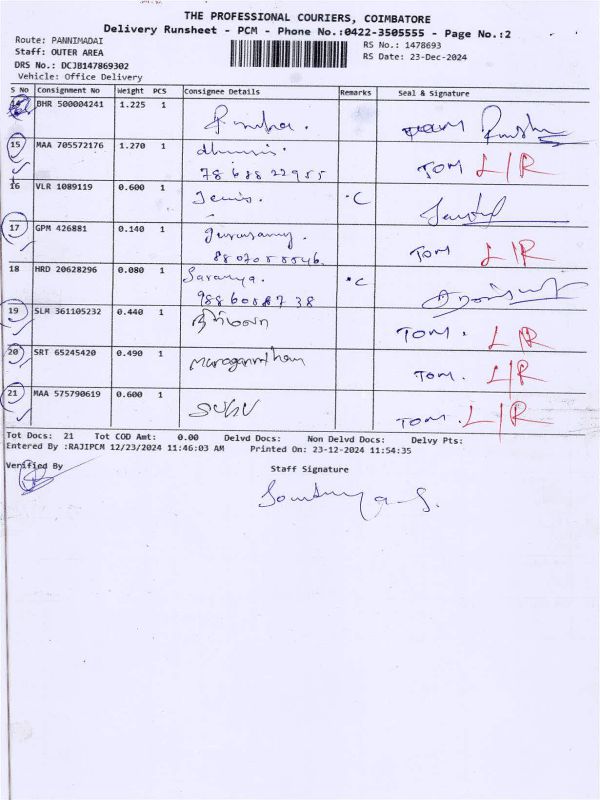 THE PROFESSIONAL COURIERS, COIMBATORE
Delivery Runsheet - PCM - Phone No.:0422-3505555 - Page No.:2
Route: PANNIMADAI
RS No.: 1478693
Staff: OUTER AREA
RS Date: 23-Dec-2024
DRS No.: DCJB147869302
Vehicle: Office Delivery
S No Consignment No Weight PCS Consignee Details Remarks Seal & Signature
BHR 500004241 1.225 1
15 MAA 705572176 1.270 1 TOM L/R
16 VLR 1089119 0.600 1 Jenis. C
17 GPM 426881 0.140 1 TOM L/R
18 HRD 20628296 0.080 1 Saranya. C
19 SLM 361105232 0.440 1 TOM. L/R
20 SRT 65245420 0.490 1 TOM. L/R
21 MAA 575790619 0.600 1 TOM. L/R
Tot Docs: 21 Tot COD Amt: 0.00 Delvd Docs: Non Delvd Docs: Delvy Pts:
Entered By :RAJIPCM 12/23/2024 11:46:03 AM Printed On: 23-12-2024 11:54:35
Verified By Staff Signature